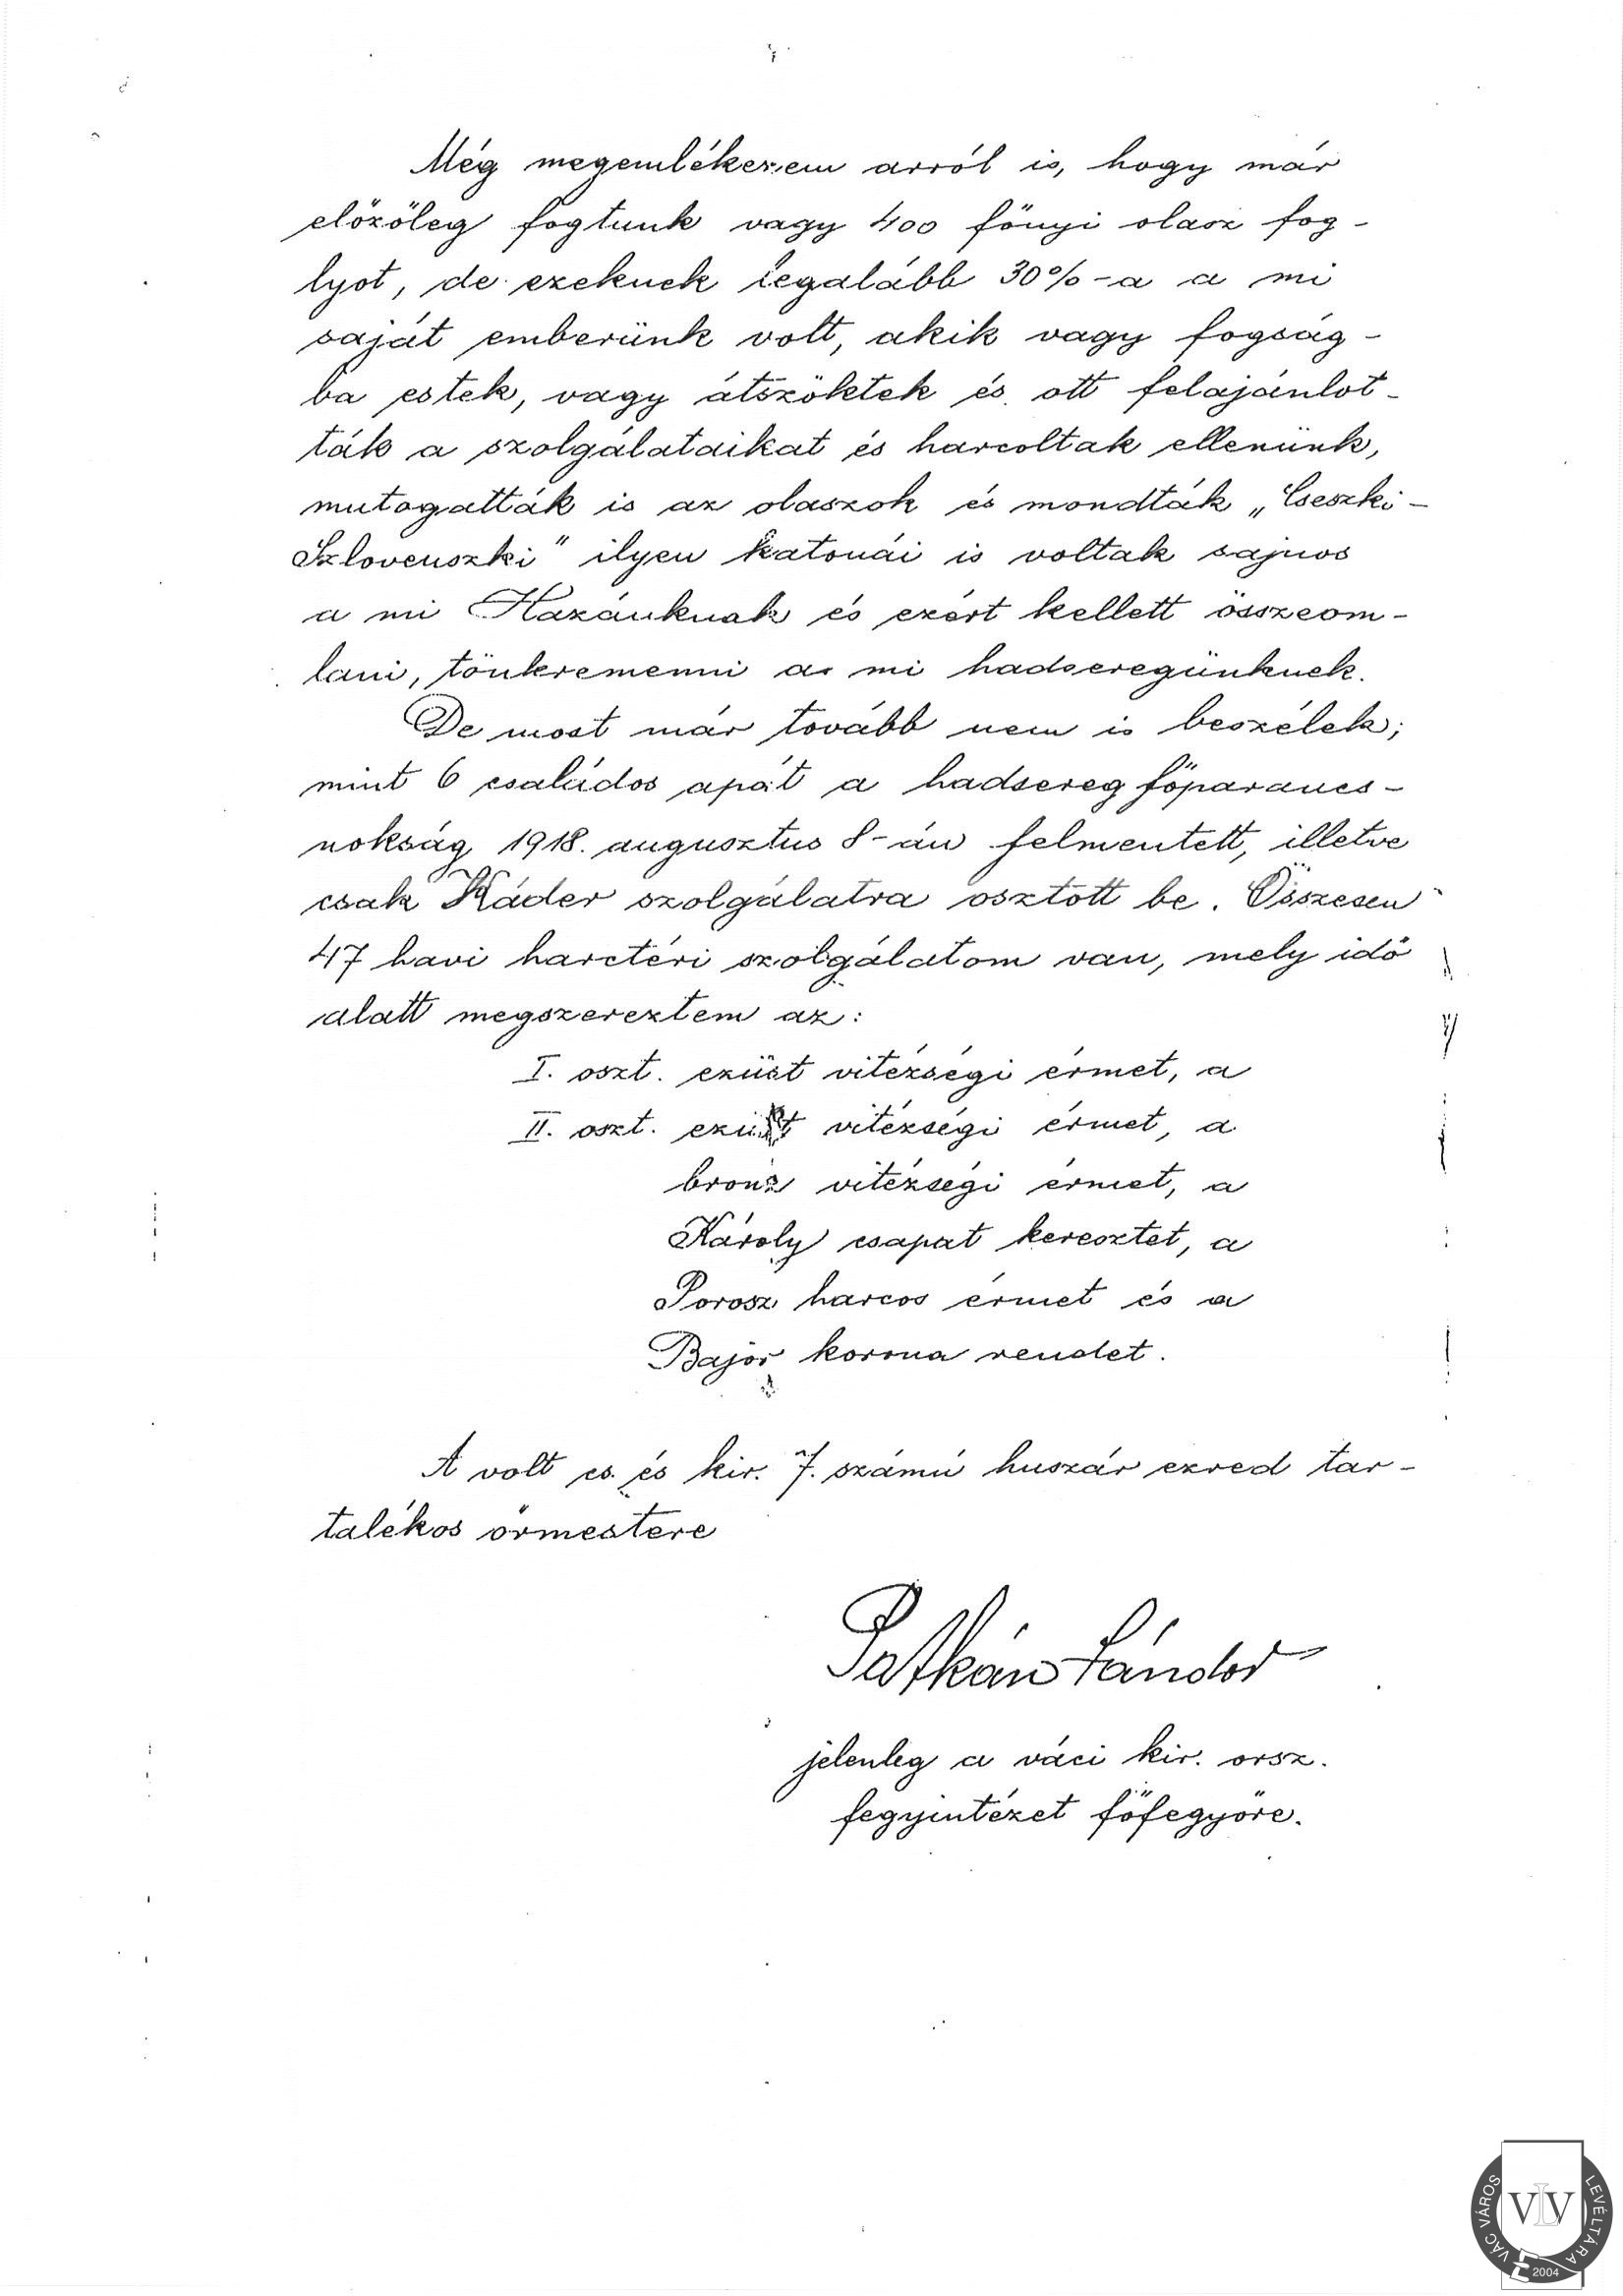 Még megemlékezem arról is, hogy már
előzőleg fogtunk vagy 400 főnyi olasz fog-
lyot, de ezeknek legalább 30%-a a mi
saját emberünk volt, akik vagy fogság-
ba estek, vagy átszöktek és ott felajánlot-
ták a szolgálataikat és harcoltak ellenünk,
mutogatták is az olaszok és mondták „Cseszki-
Szlovenszki" ilyen katonái is voltak sajnos
a mi Hazánknak és ezért kellett összeom-
lani, tönkremenni a mi hadseregünknek.
De most már tovább nem is beszélek;
mint 6 családos apát a hadsereg főparancs-
nokság 1918. augusztus 8-án felmentett, illetve
csak Káder szolgálatra osztott be. Összesen
47 havi harctéri szolgálatom van, mely idő
alatt megszereztem az:
I. oszt. ezüst vitézségi érmet, a
II. oszt. ezüst vitézségi érmet, a
bronz vitézségi érmet, a
Károly csapat keresztet, a
Porosz harcos érmet és a
Bajor korona rendet.
A volt cs. és kir. 7. számú huszár ezred tar-
talékos őrmestere
Patkán Sándor
jelenleg a váci kir. orsz.
fegyintézet főfegyőre.
VÁC VÁROS LEVÉLTÁRA
VLV
2004